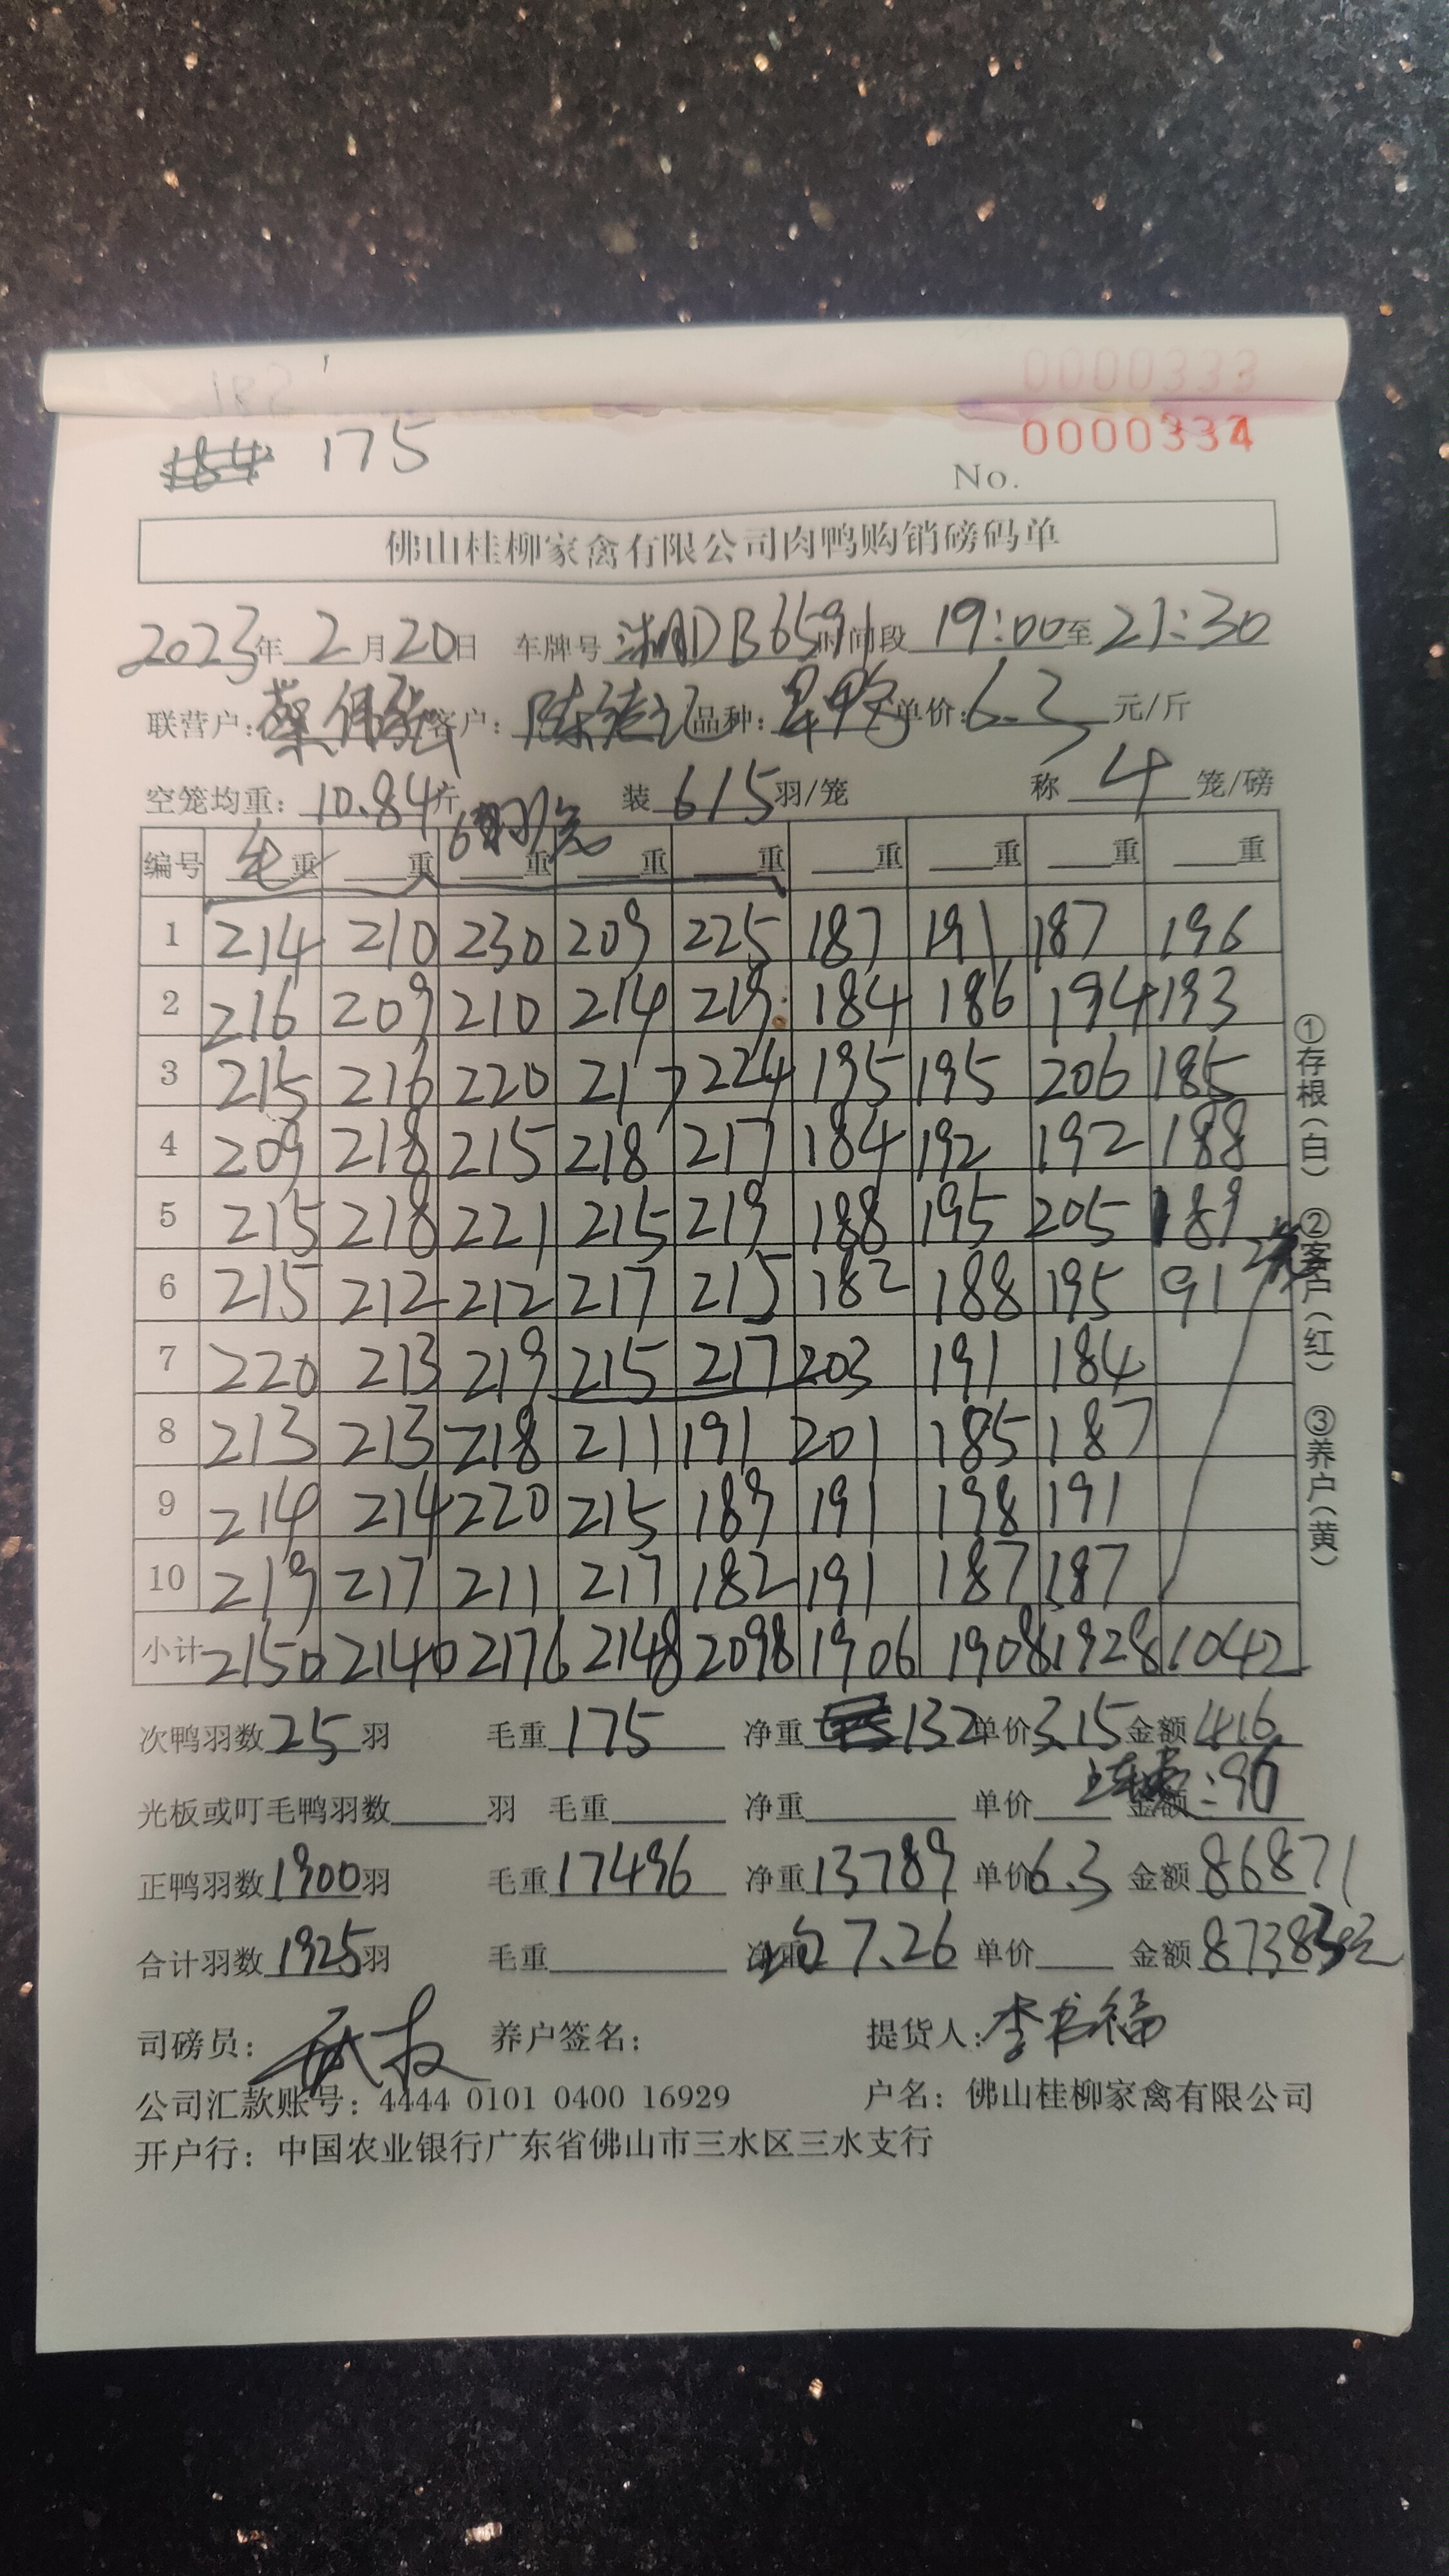 0000333
175
0000334
No.
佛山桂柳家禽有限公司肉鸭购销磅码单
2023年 2月20日 车牌号 湘DB6591 时间段 19:00至21:30
联营户: 客户: 陈 品种: 单价:6.3元/斤
空笼均重: 10.84斤 装 6/5羽/笼 称 4 笼/磅
6羽/笼
编号 毛重 重 重 重 重 重 重 重 重
1 214 210 230 209 225 187 191 187 196
2 216 209 210 214 219 184 186 194 193
3 215 216 220 217 224 195 195 206 185
4 209 218 215 218 217 184 192 192 188
5 215 218 221 215 219 188 195 205 189
6 215 212 212 217 215 182 188 195 91
7 220 213 219 215 217 203 191 184
8 213 213 218 211 191 201 185 187
9 214 214 220 215 189 191 198 191
10 219 217 211 217 182 191 187 187
小计 2150 2140 2176 2148 2098 1906 1908 1928 1042
次鸭羽数25羽 毛重175 净重132 单价3.15 金额416
光板或叮毛鸭羽数 羽 毛重 净重 单价 金额:96
正鸭羽数1900羽 毛重17496 净重13789 单价6.3 金额86871
合计羽数1925羽 毛重 净重 均7.26 单价 金额87383元
司磅员: 养户签名: 提货人:李书福
公司汇款账号: 4444 0101 0400 16929 户名: 佛山桂柳家禽有限公司
开户行: 中国农业银行广东省佛山市三水区三水支行
①存根(白) ②客户(红) ③养户(黄)